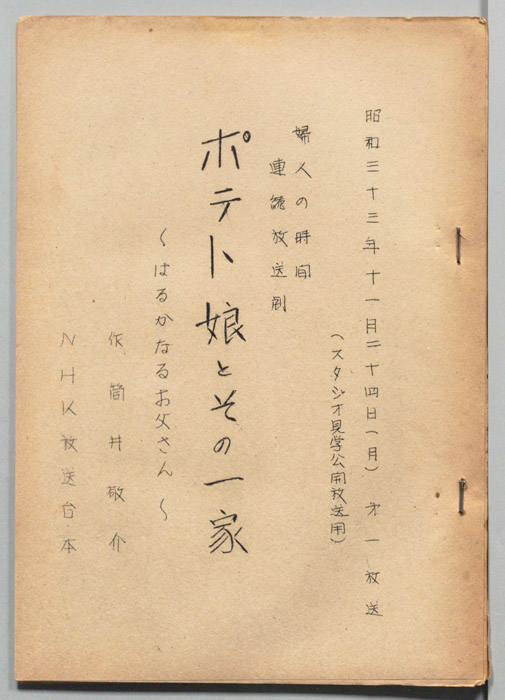 昭和三十三年十一月二十四日(月) 才一放送
(スタジオ見学公開放送用)
婦人の時間
連続放送劇
ポテト娘とその一家
〜はるかなるお父さん〜
作 筒井敬介
NHK放送台本